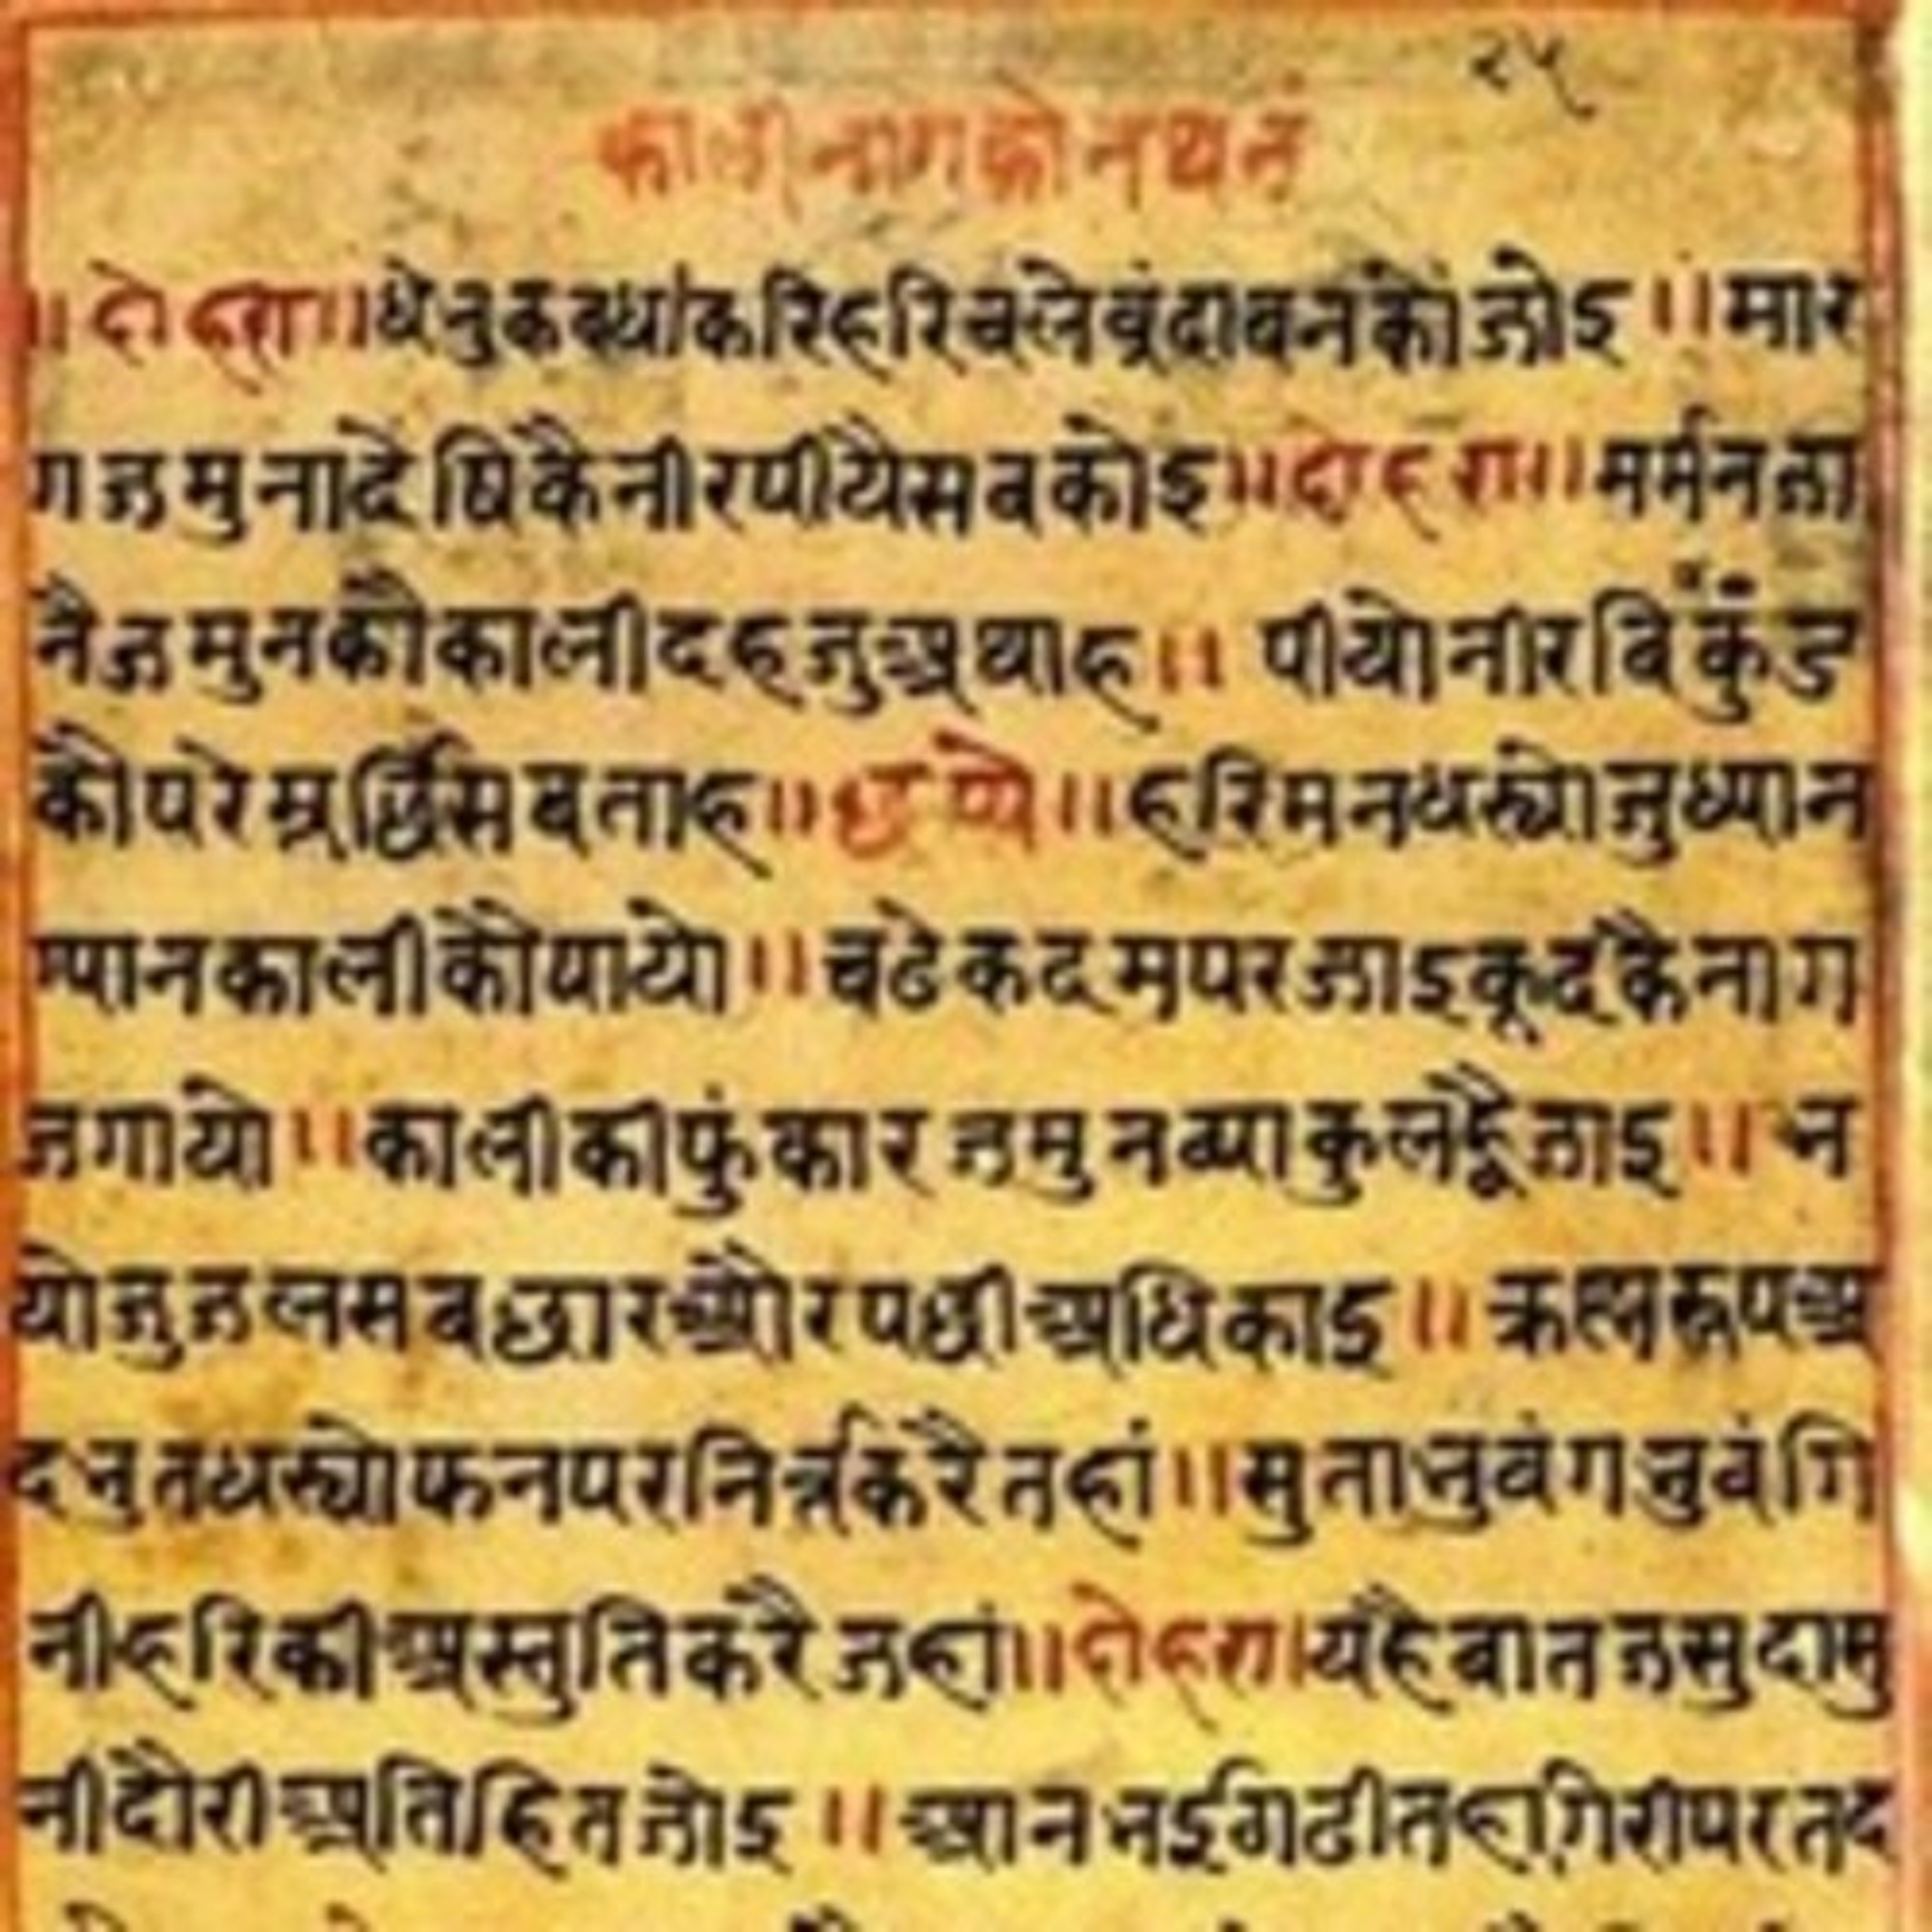 २५
काली नाग को नथनं
॥दोहरा॥धेनुकबधांकरिहरिचलेब्रंदाबनकौंजोइ॥मार
गजमुनादेषिकैनीरपीयैसबकोइ॥दोहरा॥मर्मनजा
नैजमुनकौकालीदहजुअथाह॥पीयोनीरबिकुंड
कौपरेमूर्छिसबताह॥छपे॥हरिमनधस्योजुध्यान
ग्यानकालीकौपायो॥चढेकदमपरजाइकूदकैनाग
जगायो॥कालीकीफुंकारजमुनब्याकुलह्वैजाइ॥भ
योजुजलसबछारऔरपछीअधिकाइ॥क्रस्नरूपअ
दभुतधस्योफनपरनिर्त्तकरैतहां॥सुताभुवंगभुवंगि
नीहरिकीअस्तुतिकरैजहां॥दोहरा॥यहैबातजसुदासु
नीदौरीअतिहितजोइ॥आनभईगढीतहागिरीपरतद